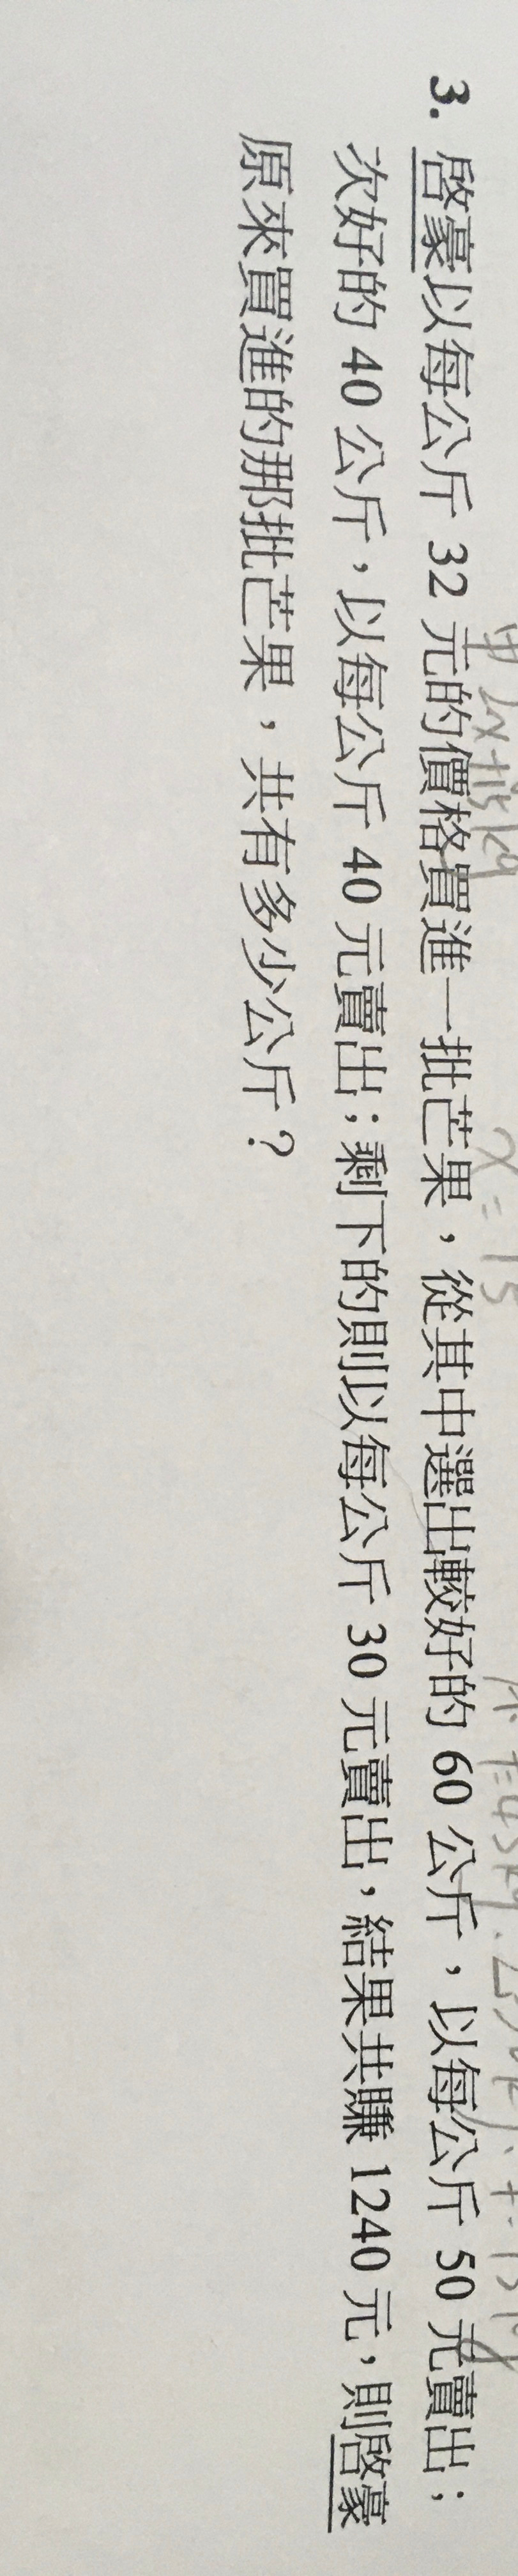 甲 2x+15kg
x=15
3. 啓豪以每公斤 32 元的價格買進一批芒果，從其中選出較好的 60 公斤，以每公斤 50 元賣出；
次好的 40 公斤，以每公斤 40 元賣出；剩下的則以每公斤 30 元賣出，結果共賺 1240 元，則啓豪
原來買進的那批芒果，共有多少公斤？